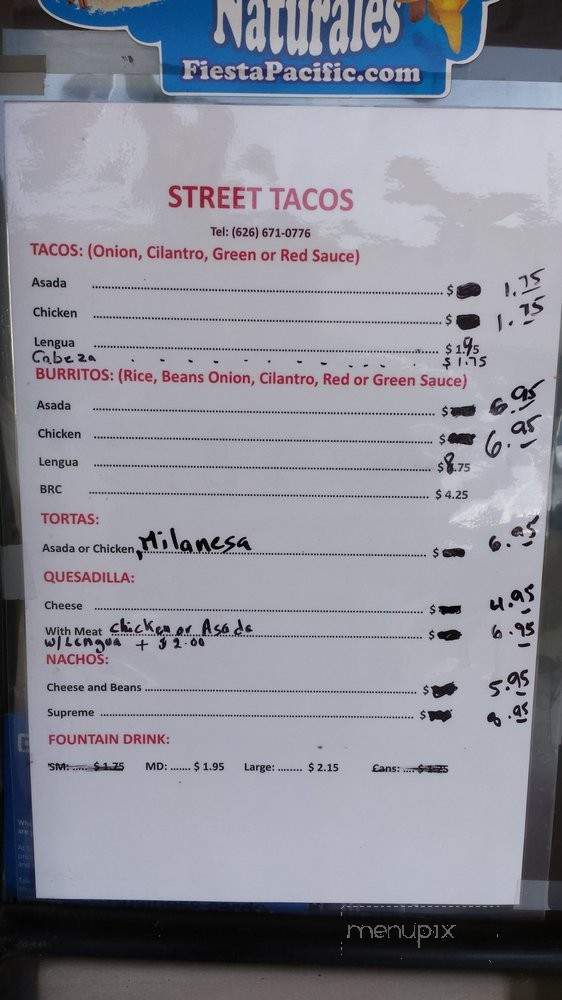 Naturales
FiestaPacific.com
STREET TACOS
Tel: (626) 671-0776
TACOS: (Onion, Cilantro, Green or Red Sauce)
Asada ........ $ 1.75
Chicken ........ $ 1.75
Lengua ........ $ 1.95
Cabeza - - - - - - - - - $ 1.75
BURRITOS: (Rice, Beans Onion, Cilantro, Red or Green Sauce)
Asada ........ $ 6.95
Chicken ........ $ 6.95
Lengua ........ $ 8.75
BRC ........ $ 4.25
TORTAS:
Asada or Chicken, Milanesa ........ $ 6.95
QUESADILLA:
Cheese ........ $ 4.95
With Meat Chicken or Asada ........ $ 6.95
w/Lengua + $ 2.00
NACHOS:
Cheese and Beans ........ $ 5.95
Supreme ........ $ 8.95
FOUNTAIN DRINK:
SM: ..... $ 1.75 MD: ....... $ 1.95 Large: ........ $ 2.15 Cans: .... $ 1.25
menupix